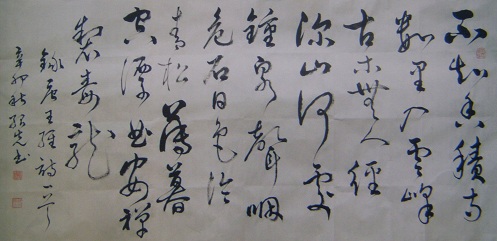 不知香積寺
數里入雲峰
古木無人徑
深山何處
鐘泉聲咽
危石日色冷
青松薄暮
空潭曲安禪
製毒龍
錄唐王維詩一首
辛卯秋 先書